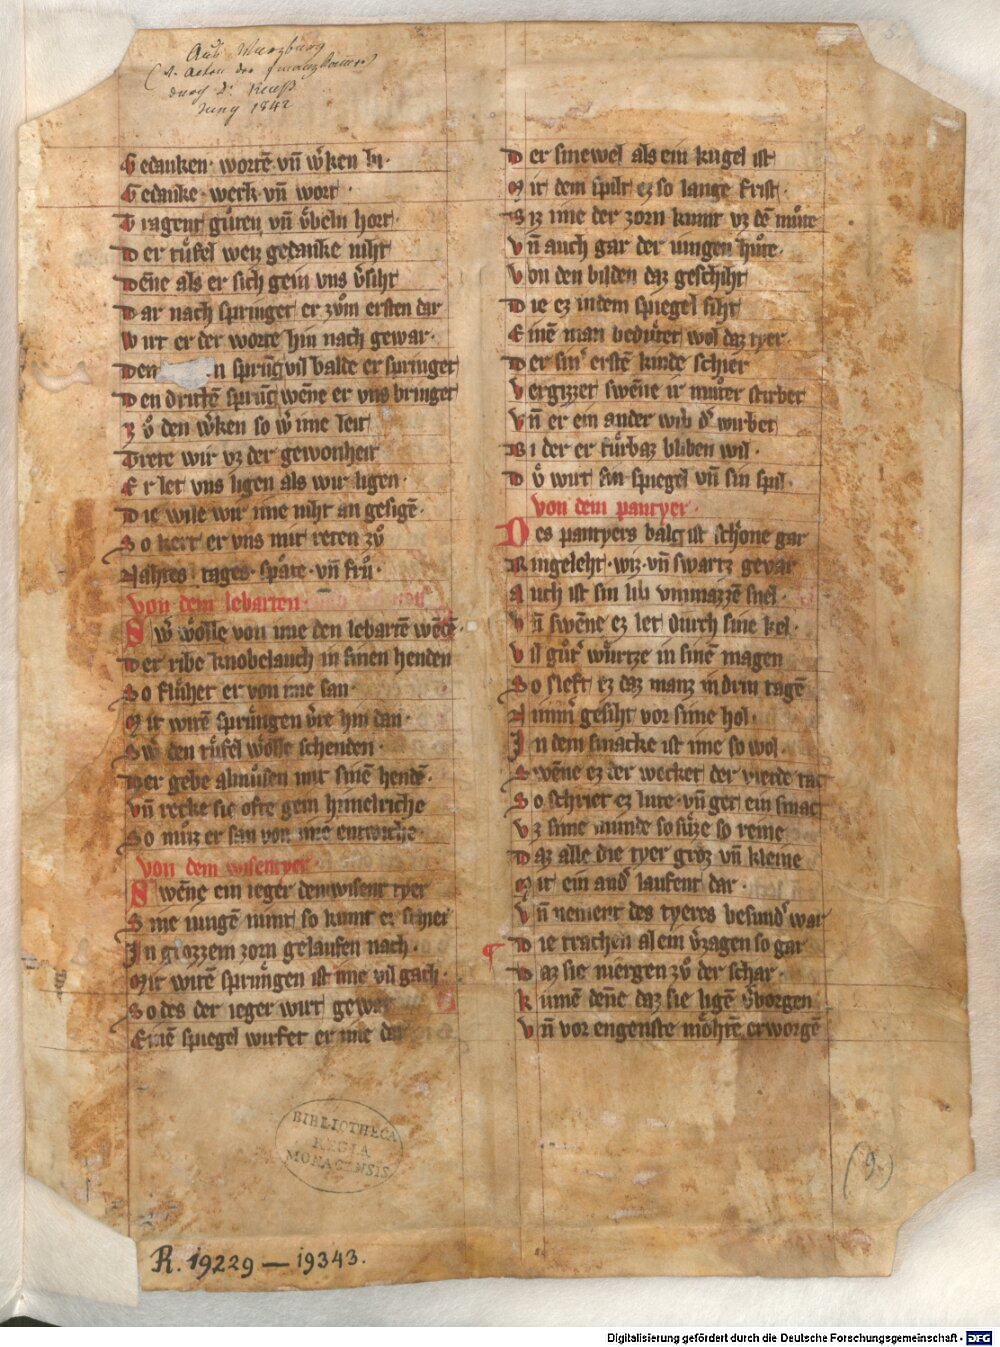 Aus Würzburg
durch Dr. Reuß
Juny 1842
Gedanken · wortē vn̄ w̾ken bi ·
Gedanke · werk vn̄ wort ·
Tragent gůten vn̄ v̈beln hort ·
Der tüfel weiz gedanke niht
Dēne als er sich gein vns v̾siht
Dar nach springet er zům ersten dar
Wirt er der worte hin nach gewar ·
Den n sprūc vil balde er springet
Den drittē sprūc wēne er vns bringet
Zů den w̾ken so w̾ ime leit
Trete wir vz der gewonheit
Er let vns ligen als wir ligen ·
Die wile wir ime niht an gesigē ·
So kert er vns mit reten zů
Nahtes · tages · spāte · vn̄ frů ·
Von dem lebarten
Sw̾ wölle von ime den lebartē wēdē ·
Der ribe knobelauch in sinen henden
So flühet er von ime san ·
Mit witē sprüngen v̾re hin dan ·
Sw̾ den tüfel wölle schenden ·
Der gebe almůsen mit sinē hendē ·
Vn̄ recke sie ofte gein himelriche
So můz er san von ime entwiche ·
Von dem wisentyer
Swēne ein ieger dem wisent tyer
Sine iungē nimt so kumt er schier
In grozzem zorn gelaufen nach ·
Mit witē sprüngen ist ime vil gach ·
So des der ieger wirt gewar
Einē spiegel wirfet er ime dar
Der sinewel als ein kugel ist
Mit dem spilt ez so lange frist ·
Biz ime der zorn kumt vz dē můte
Vn̄ auch gar der iungen hůte ·
Von den bilden daz geschiht
Die ez in dem spiegel siht
Einē man bedůtet wol daz tyer ·
Der sin̾ erstē kinde schier
Vergizzet swēne ir můter stirbet
Vn̄ er ein ander wib d̾ wirbet
Bi der er fürbaz bliben wil ·
Dv̊ wirt sin spiegel vn̄ sin spil ·
Von dem pantyer ·
Des pantyers balg ist schöne gar
Ringeleht · wiz · vn̄ swartz gevar
Auch ist sin lib vnmazzē snel ·
Vn̄ swēne ez let durch sine kel ·
Vil gůt̾ würtze in sinē magen
So sleft ez daz manz in drin tagē
Nimm̾ gesiht vor sime hol ·
In dem smacke ist ime so wol ·
Swēne ez der wecket der vierde tac
So schriet ez lute · vn̄ get ein smac
Vz sime munde so süze so reine
Daz alle die tyer groz vn̄ kleine
Mit ein and̾ laufent dar ·
Vn̄ nement des tyeres besund̾ war
Die trachen alein v̾zagen so gar
Daz sie niergen zů der schar ·
Kumē dēne daz sie ligē v̾borgen
Vn̄ vor engenste möhtē erworgē
BIBLIOTHECA
REGIA
MONACENSIS
(9.)
R. 19229 — 19343.
Digitalisierung gefördert durch die Deutsche Forschungsgemeinschaft - DFG